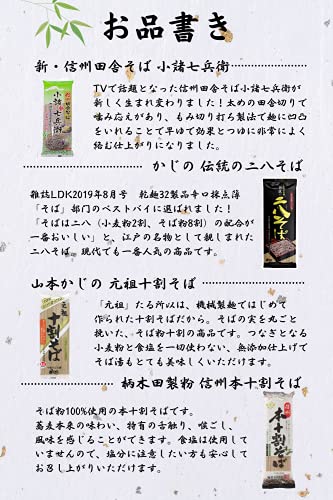 お品書き
新・信州田舎そば 小諸七兵衛
TVで話題となった信州田舎そば小諸七兵衛が
新しく生まれ変わりました!太めの田舎切りで
噛み応えがあり、もみ切り打ち製法で麺に凹凸
をいれることで早ゆで効果とつゆに非常によく
絡む仕上がりになりました。
かじの 伝統の二八そば
雑誌LDK2019年8月号 乾麺32製品辛口採点簿
「そば」部門のベストバイに選ばれました!
「そばは二八(小麦粉2割、そば粉8割)の配合が
一番おいしい」と、江戸の名物として親しまれた
二八そば。現代でも一番人気の商品です。
山本かじの 元祖十割そば
「元祖」たる所以は、機械製麺ではじめて
作られた十割そばだから。そばの実を丸ごと
挽いた、そば粉十割の商品です。つなぎとなる
小麦粉と食塩を一切使わない、無添加仕上げで
そば湯もとても美味しくいただけます。
柄木田製粉 信州本十割そば
そば粉100%使用の本十割そばです。
蕎麦本来の味わい、特有の舌触り、喉ごし、
風味を感じることができます。食塩は使用して
いませんので、塩分に注意したい方も安心して
お召し上がりいただけます。
小諸
七兵衛
二八そば
十割そば
本十割そば